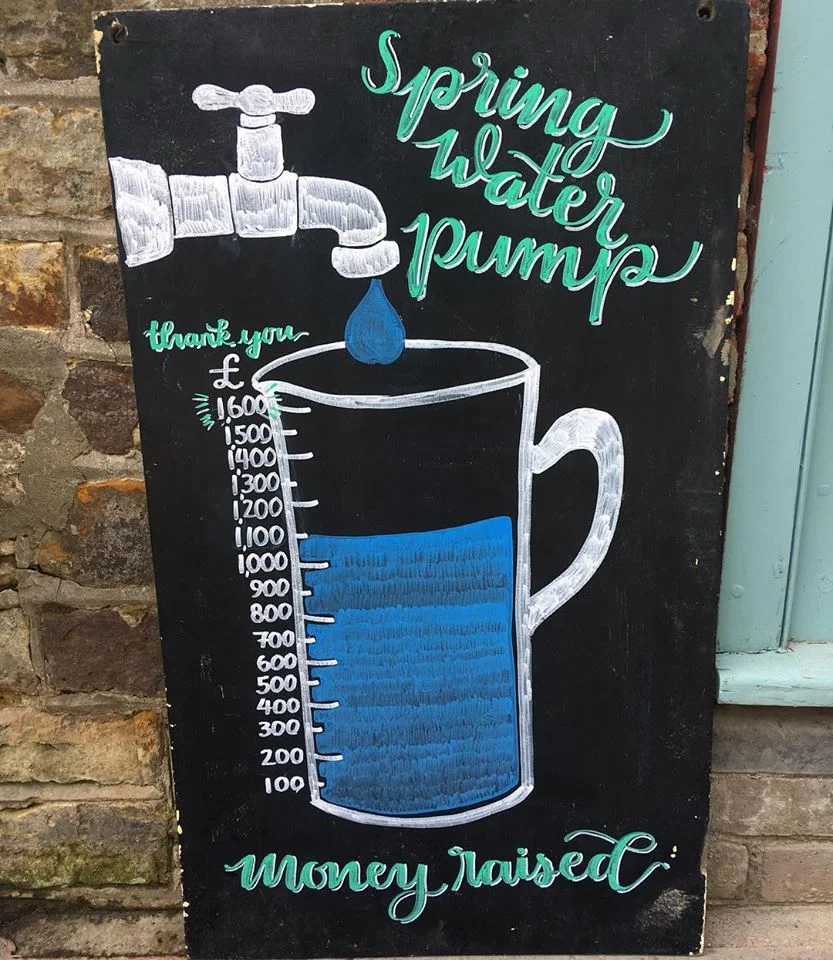 Spring
Water
Pump
thank you
£
1,600
1,500
1,400
1,300
1,200
1,100
1,000
900
800
700
600
500
400
300
200
100
money raised